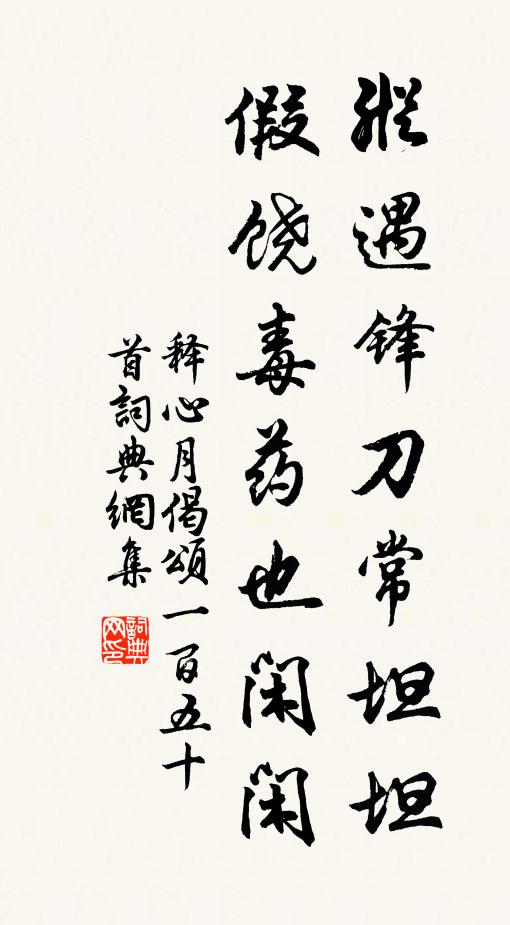 縱遇锋刀常坦坦
假饶毒药也閑閑
释心月偈頌一百五十
首詞典網集
詞典网印